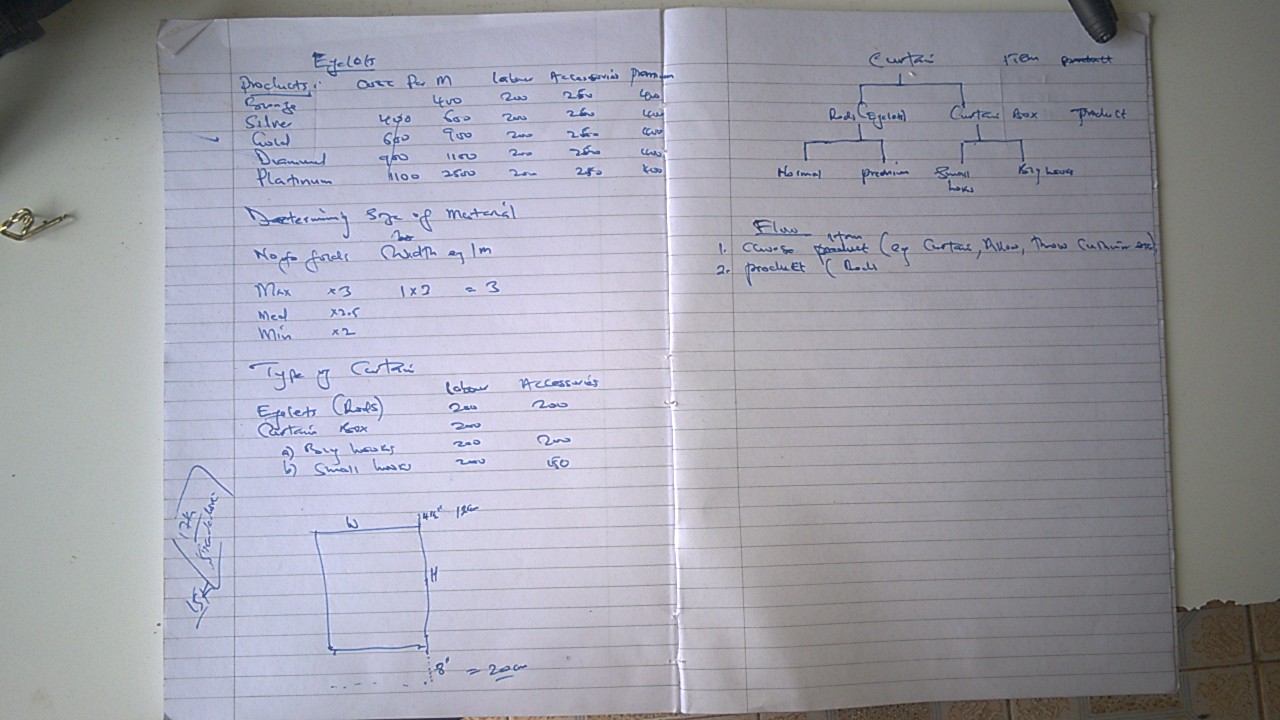 Eyelets
Products: Curtc Per M Labour Accessories Premium
Bronze 400 400 200 250 400
Silver 600 600 200 250 400
Gold 900 200 250 400
Diamond 900 1100 200 250 400
Platinum 1100 2500 200 250 400
Determining Size of Material
No of folds Width eg 1m
Max x3 1 x 3 = 3
Med x2.5
Min x2
Type of Curtain Labour Accessories
Eyelets (Rods) 200 200
Curtain Box 200
a) Roly hooks 200 200
b) Small hooks 200 150
W
H
8" = 20cm
Curtain Item product
Rods (Eyelets) Curtain Box product
Normal Premium Small hooks Roly hooks
Flow
item
1. Choose product (eg Curtain, Pillow, Throw Cushion etc)
2. product (Rods